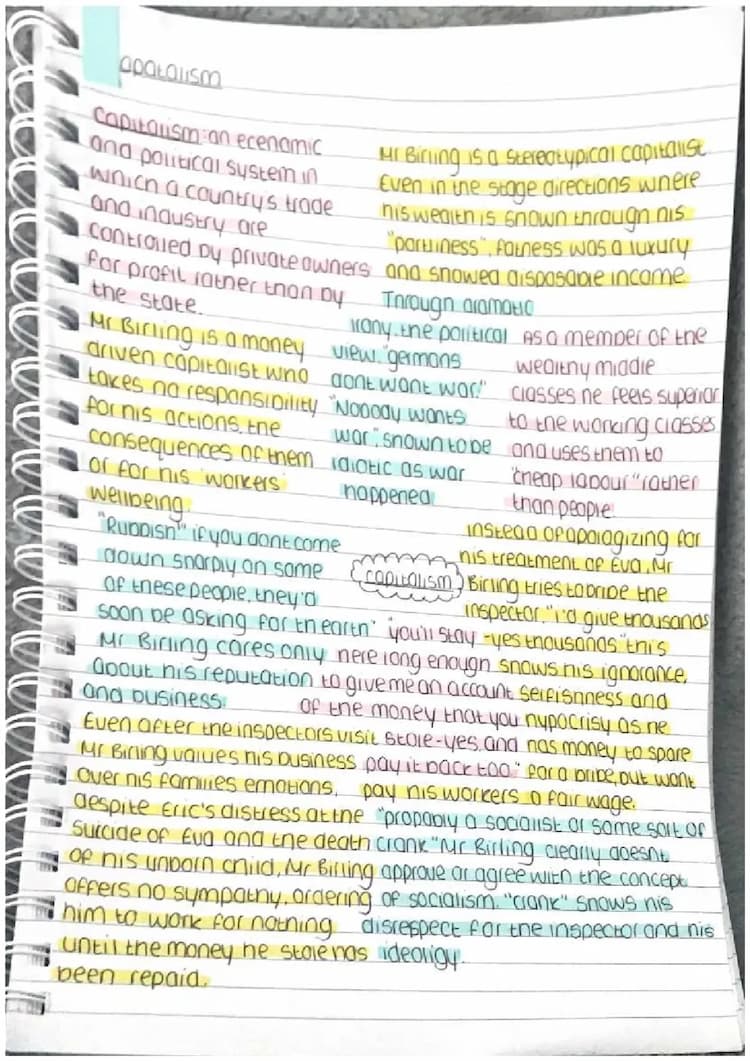 apatalism
Capitalism: an ecenomic
and political system in
which a country's trade
and industry are
controlled by private owners
for profit rather than by
the state.
Mr Birling is a stereotypical capitalist
Even in the stage directions where
his wealth is shown through his
"portliness", fatness was a luxury
and showed disposable income
Mr Birling is a money
driven capitalist who
takes no responsibility
for his actions, the
consequences of them
or for his workers
wellbeing.
Through dramatic
irony, the political
view. "germans
dont want war."
"Nobody wants
war". shown to be
idiotic as war
happened
As a member of the
wealthy middle
classes he feels superior
to the working classes
and uses them to
"cheap labour" rather
than people.
"Rubbish" if you dont come
down sharply on some
of these people, they'd
soon be asking for th earth"
Mr Birling cares only
about his reputation
and business.
capitalism
instead of apologizing for
his treatment of Eva, Mr
Birling tries to bribe the
inspector. "i'd give thousands
-yes thousands" this
shows his ignorance,
selfishness and
hypocrisy as he
has money to spare
for a bribe, but wont
pay his workers a fair wage.
you'll stay
here long enough
to give me an account
of the money that you
stole-yes, and
pay it back too."
Even after the inspectors visit
Mr Birling values his business
over his families emotions,
despite Eric's distress at the
surcide of Eva and the death
of his unborn child, Mr Birling
offers no sympathy, ordering
him to work for nothing
until the money he stole has
been repaid.
"probably a socialist or some sort of
crank" Mr Birling clearly doesnt
approve or agree with the concept
of socialism. "crank" shows his
disrespect for the inspector and his
ideoligy.